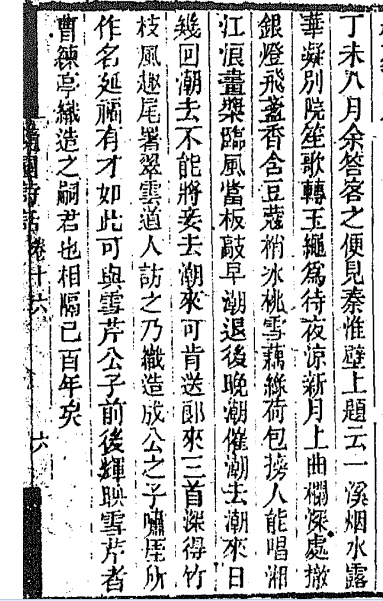 丁未八月余答客之便見秦淮壁上題云一溪烟水露
華凝別院笙歌轉玉繩為待夜涼新月上曲欄深處撤
銀燈飛盞香含豆蔻梢冰桃雪藕綠荷包榜人能唱湘
江浪畫槳臨風當板敲早潮退後晚潮催潮去潮來日
幾回潮去不能將妾去潮來可肯送郎來三首深得竹
枝風趣尾署翠雲道人訪之乃織造成公之子嘯厓所
作名延福有才如此可與雪芹公子前後輝映雪芹者
曹練亭織造之嗣君也相隔已百年矣
隨園詩話 卷十六 六